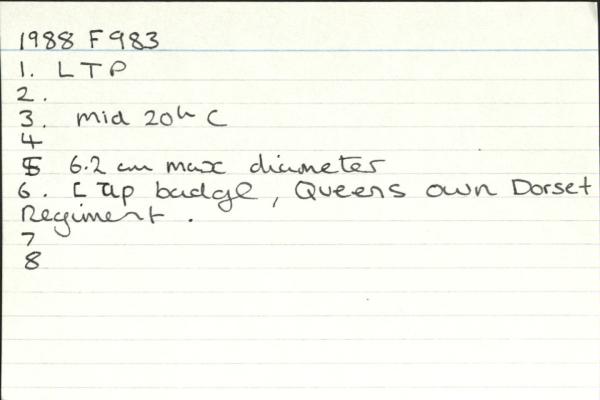 1988 F 983
1. LTP
2.
3. mid 20th C
4
5 6.2 cm max diameter
6. Cap badge, Queens own Dorset
Regiment.
7
8